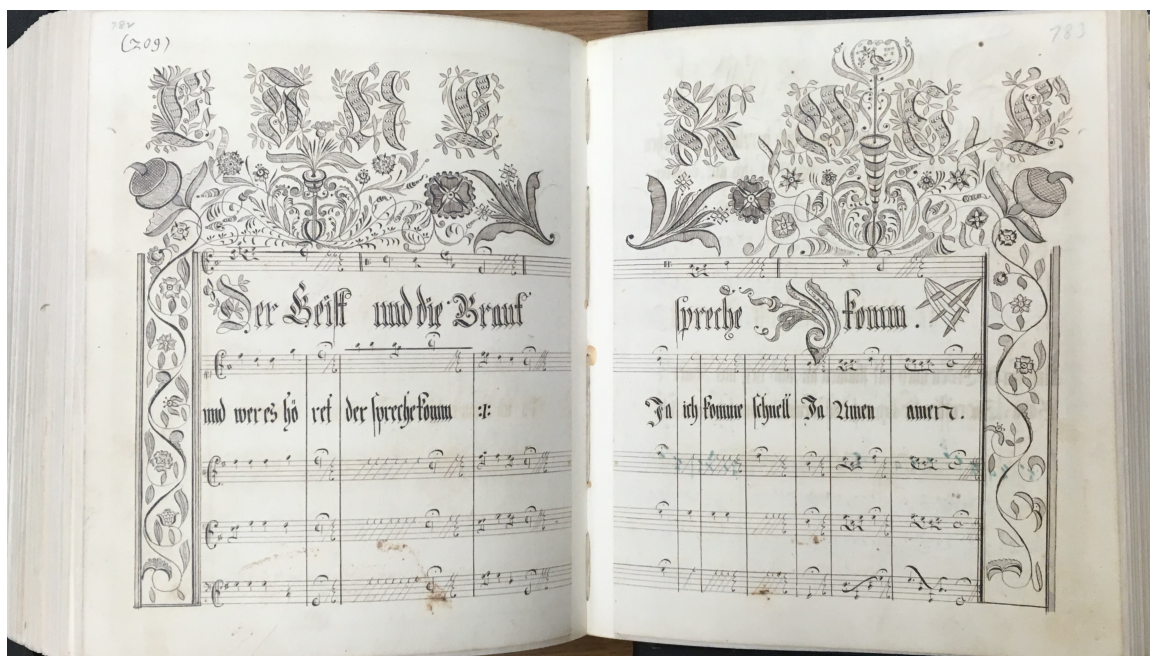 782
(209)
783
Der Geist und die Braut
spreche komm.
und wer es hö ret der spreche komm :|:
Ja ich komme schnell Ja Amen amen.